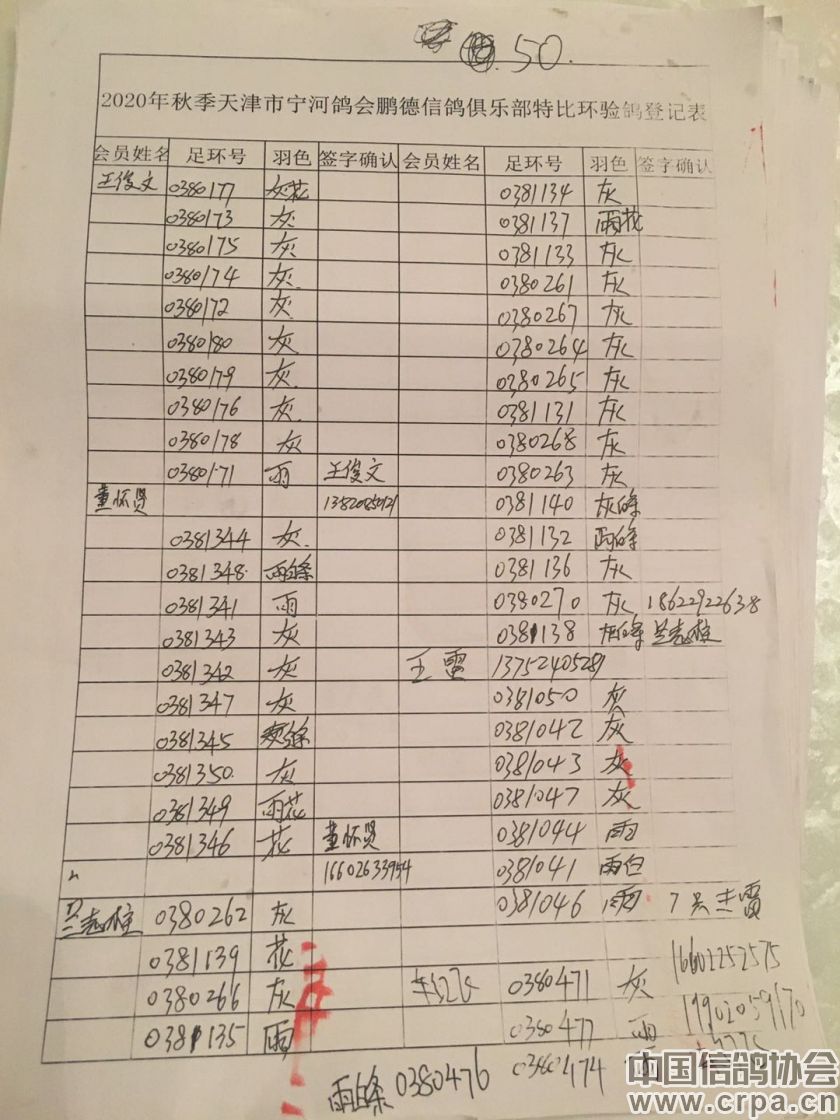 50.
2020年秋季天津市宁河鸽会鹏德信鸽俱乐部特比环验鸽登记表
会员姓名 足环号 羽色 签字确认 会员姓名 足环号 羽色 签字确认
王俊文 0380177 灰花 0381134 灰
0380173 灰 0381137 雨花
0380175 灰 0381133 灰
0380174 灰 0380261 灰
0380172 灰 0380267 灰
0380180 灰 0380264 灰
0380179 灰 0380265 灰
0380176 灰 0381131 灰
0380178 灰 0380268 灰
0380171 雨 王俊文 0380263 灰
董怀贤 13820850121 0381140 灰白条
0381344 灰 0381132 雨白条
0381348 雨白条 0381136 灰
0381341 雨 0380270 灰 18622922638
0381343 灰 0381138 灰白条 兰志柱
0381342 灰 王雷 13752405281
0381347 灰 0381050 灰
0381345 0381042 灰
0381350 灰 0381043 灰
0381349 雨花 0381047 灰
0381346 花 董怀贤 0381044 雨
16602633954 0381041 雨白
兰志柱 0380262 灰 0381046 雨 7只 王雷
0381139 花 16602252575
0380266 灰 0380471 灰
0381135 雨 0380477 雨 19902059170
雨白条 0380476 0380474
中国信鸽协会
www.crpa.cn